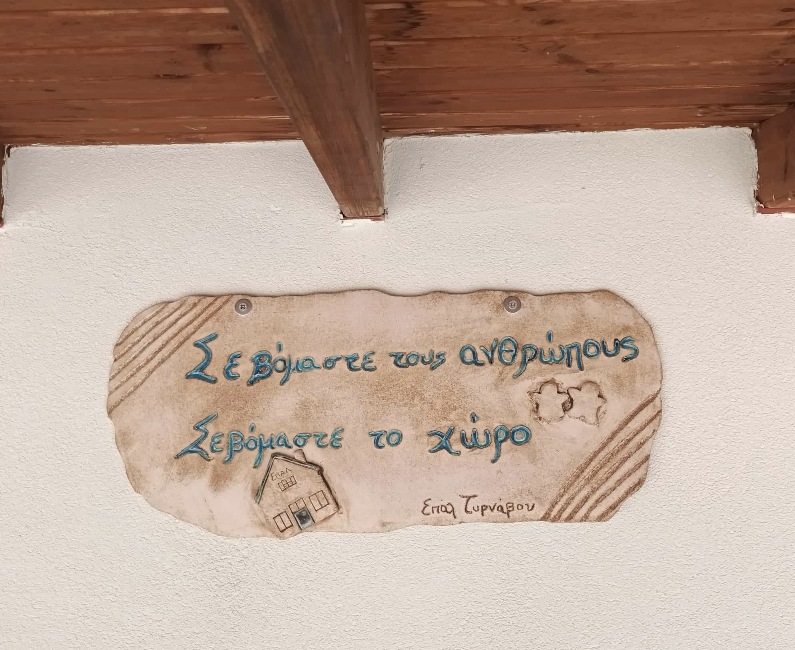 Σεβόμαστε τους ανθρώπους
Σεβόμαστε το χώρο
ΕΠΑΛ
Επαλ Τυρνάβου